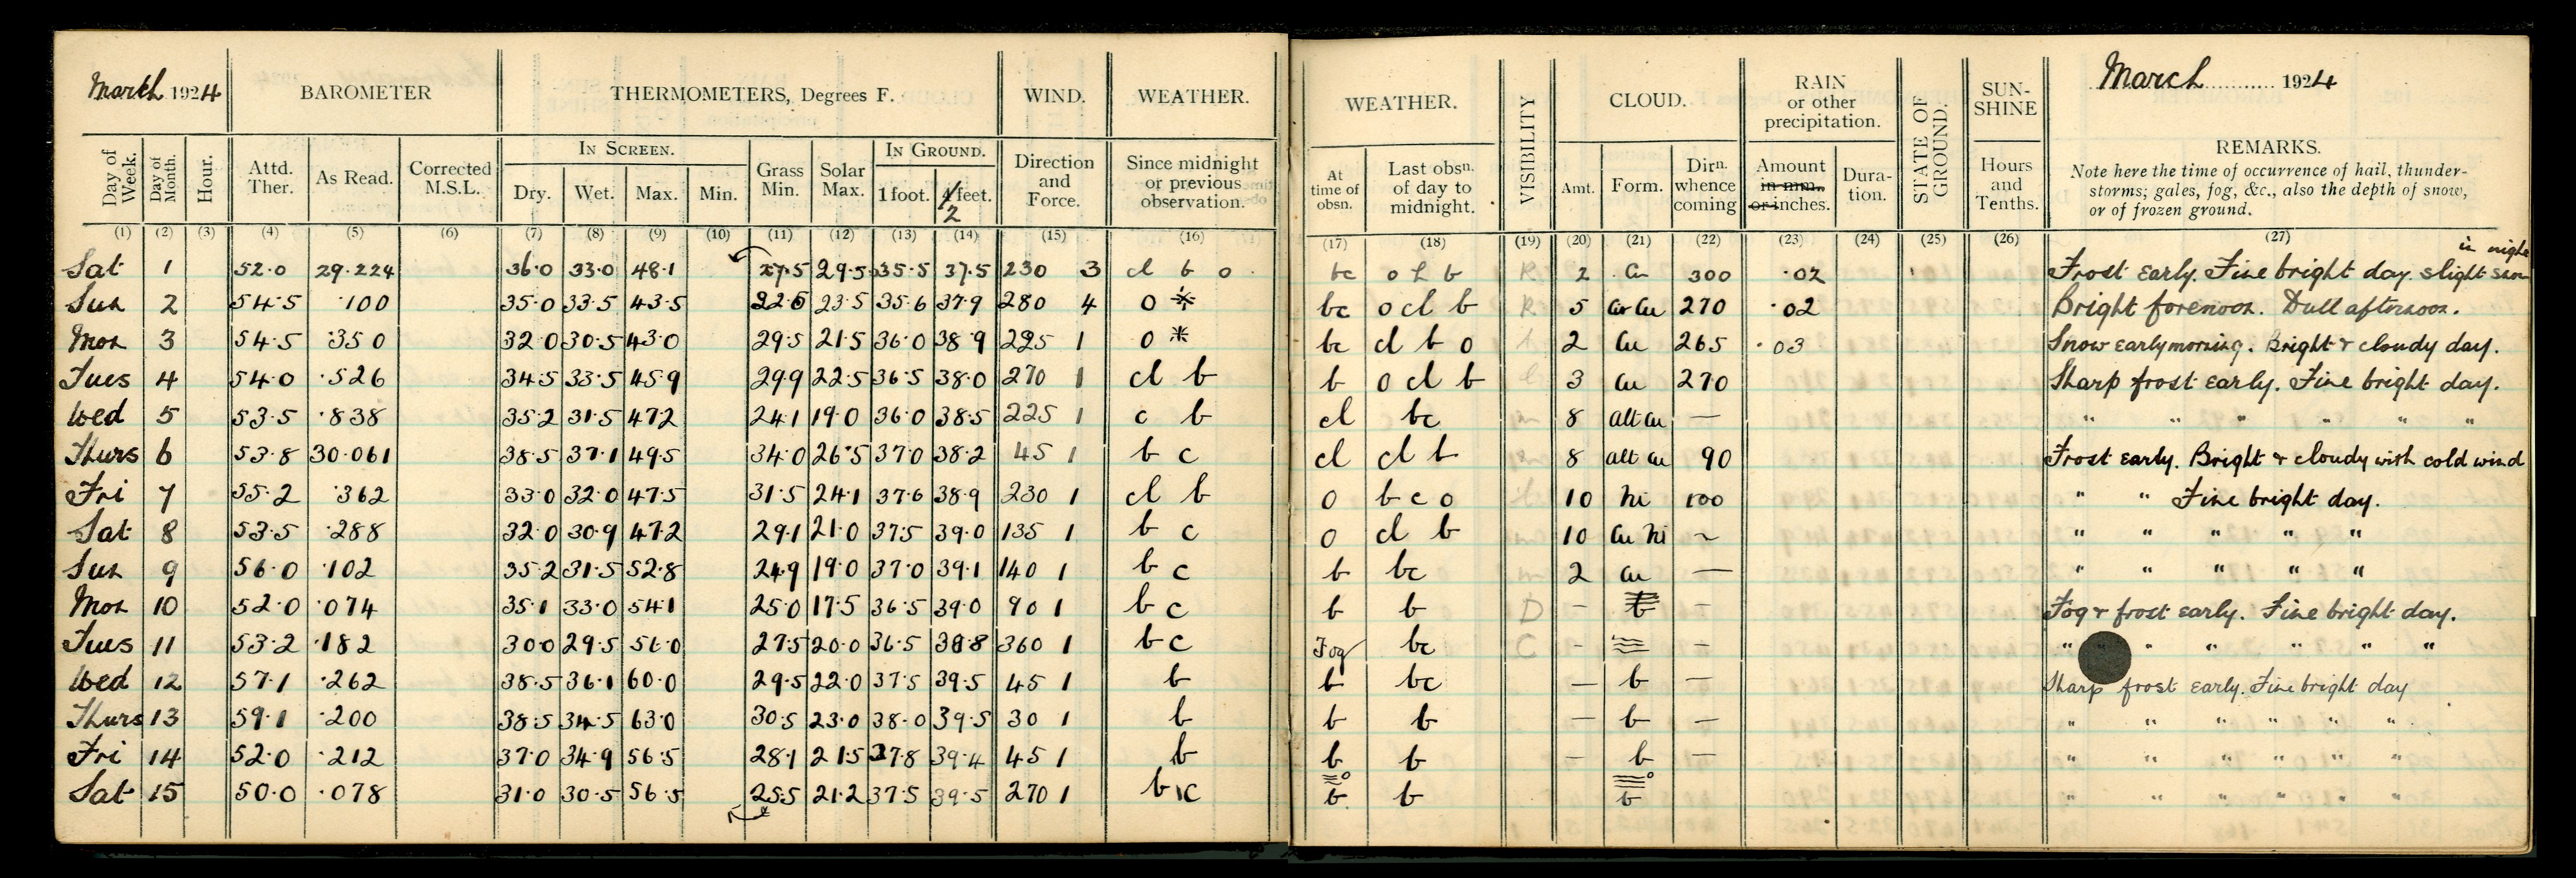 March 1924 BAROMETER THERMOMETERS, Degrees F. WIND. WEATHER. WEATHER. VISIBILITY CLOUD. RAIN or other precipitation. STATE OF GROUND. SUN-SHINE March 1924
Day of Week. Day of Month. Hour. Attd. Ther. As Read. Corrected M.S.L. IN SCREEN. Dry. Wet. Max. Min. Grass Min. Solar Max. IN GROUND. 1 foot. 4/2 feet. Direction and Force. Since midnight or previous observation. At time of obsn. Last obsn. of day to midnight. Amt. Form. Dirn. whence coming Amount in mm. or inches. Duration. Hours and Tenths. REMARKS.
Note here the time of occurrence of hail, thunder-
storms; gales, fog, &c., also the depth of snow,
or of frozen ground.
(1) (2) (3) (4) (5) (6) (7) (8) (9) (10) (11) (12) (13) (14) (15) (16) (17) (18) (19) (20) (21) (22) (23) (24) (25) (26) (27)
in night
Sat 1 52.0 29.224 36.0 33.0 48.1 27.5 29.5 35.5 37.5 230 3 cl b o bc o b 2 Cu 300 .02 Frost early. Fine bright day. slight snow
Sun 2 54.5 .100 35.0 33.5 43.5 22.5 23.5 35.6 37.9 280 4 o * bc o cl b 5 Cu 270 .02 Bright forenoon. Dull afternoon.
Mon 3 54.5 .350 32.0 30.5 43.0 29.5 21.5 36.0 38.9 225 1 o * bc cl b o 2 Cu 265 .03 Snow early morning. Bright & cloudy day.
Tues 4 54.0 .526 34.5 33.5 45.9 29.9 22.5 36.5 38.0 270 1 cl b b o cl b 3 Cu 270 Sharp frost early. Fine bright day.
Wed 5 53.5 .838 35.2 31.5 47.2 24.1 19.0 36.0 38.5 225 1 c b cl bc 8 alt Cu — " " " " " "
Thurs 6 53.8 30.061 38.5 37.1 49.5 34.0 26.5 37.0 38.2 45 1 b c cl cl b 8 alt Cu 90 Frost early. Bright & cloudy with cold wind
Fri 7 55.2 .362 33.0 32.0 47.5 31.5 24.1 37.6 38.9 230 1 cl b o b c o 10 Ni 100 " " Fine bright day.
Sat 8 53.5 .288 32.0 30.9 47.2 29.1 21.0 37.5 39.0 135 1 b c o cl b 10 Cu Ni ~ " " " " "
Sun 9 56.0 .102 35.2 31.5 52.8 24.9 19.0 37.0 39.1 140 1 b c b bc 2 Cu — " " " " "
Mon 10 52.0 .074 35.1 33.0 54.1 25.0 17.5 36.5 39.0 90 1 b c b b D – b – Fog & frost early. Fine bright day.
Tues 11 53.2 .182 30.0 29.5 56.0 27.5 20.0 36.5 38.8 360 1 b c Fog bc C – – " " " " " "
Wed 12 57.1 .262 38.5 36.1 60.0 29.5 22.0 37.5 39.5 45 1 b b bc — b — Sharp frost early. Fine bright day
Thurs 13 59.1 .200 38.5 34.5 63.0 30.5 23.0 38.0 39.5 30 1 b b b — b — " " " " " "
Fri 14 52.0 .212 37.0 34.9 56.5 28.1 21.5 37.8 39.4 45 1 b b b — b — " " " " " "
Sat 15 50.0 .078 31.0 30.5 56.5 25.5 21.2 37.5 39.5 270 1 b c b b b " " " " " "